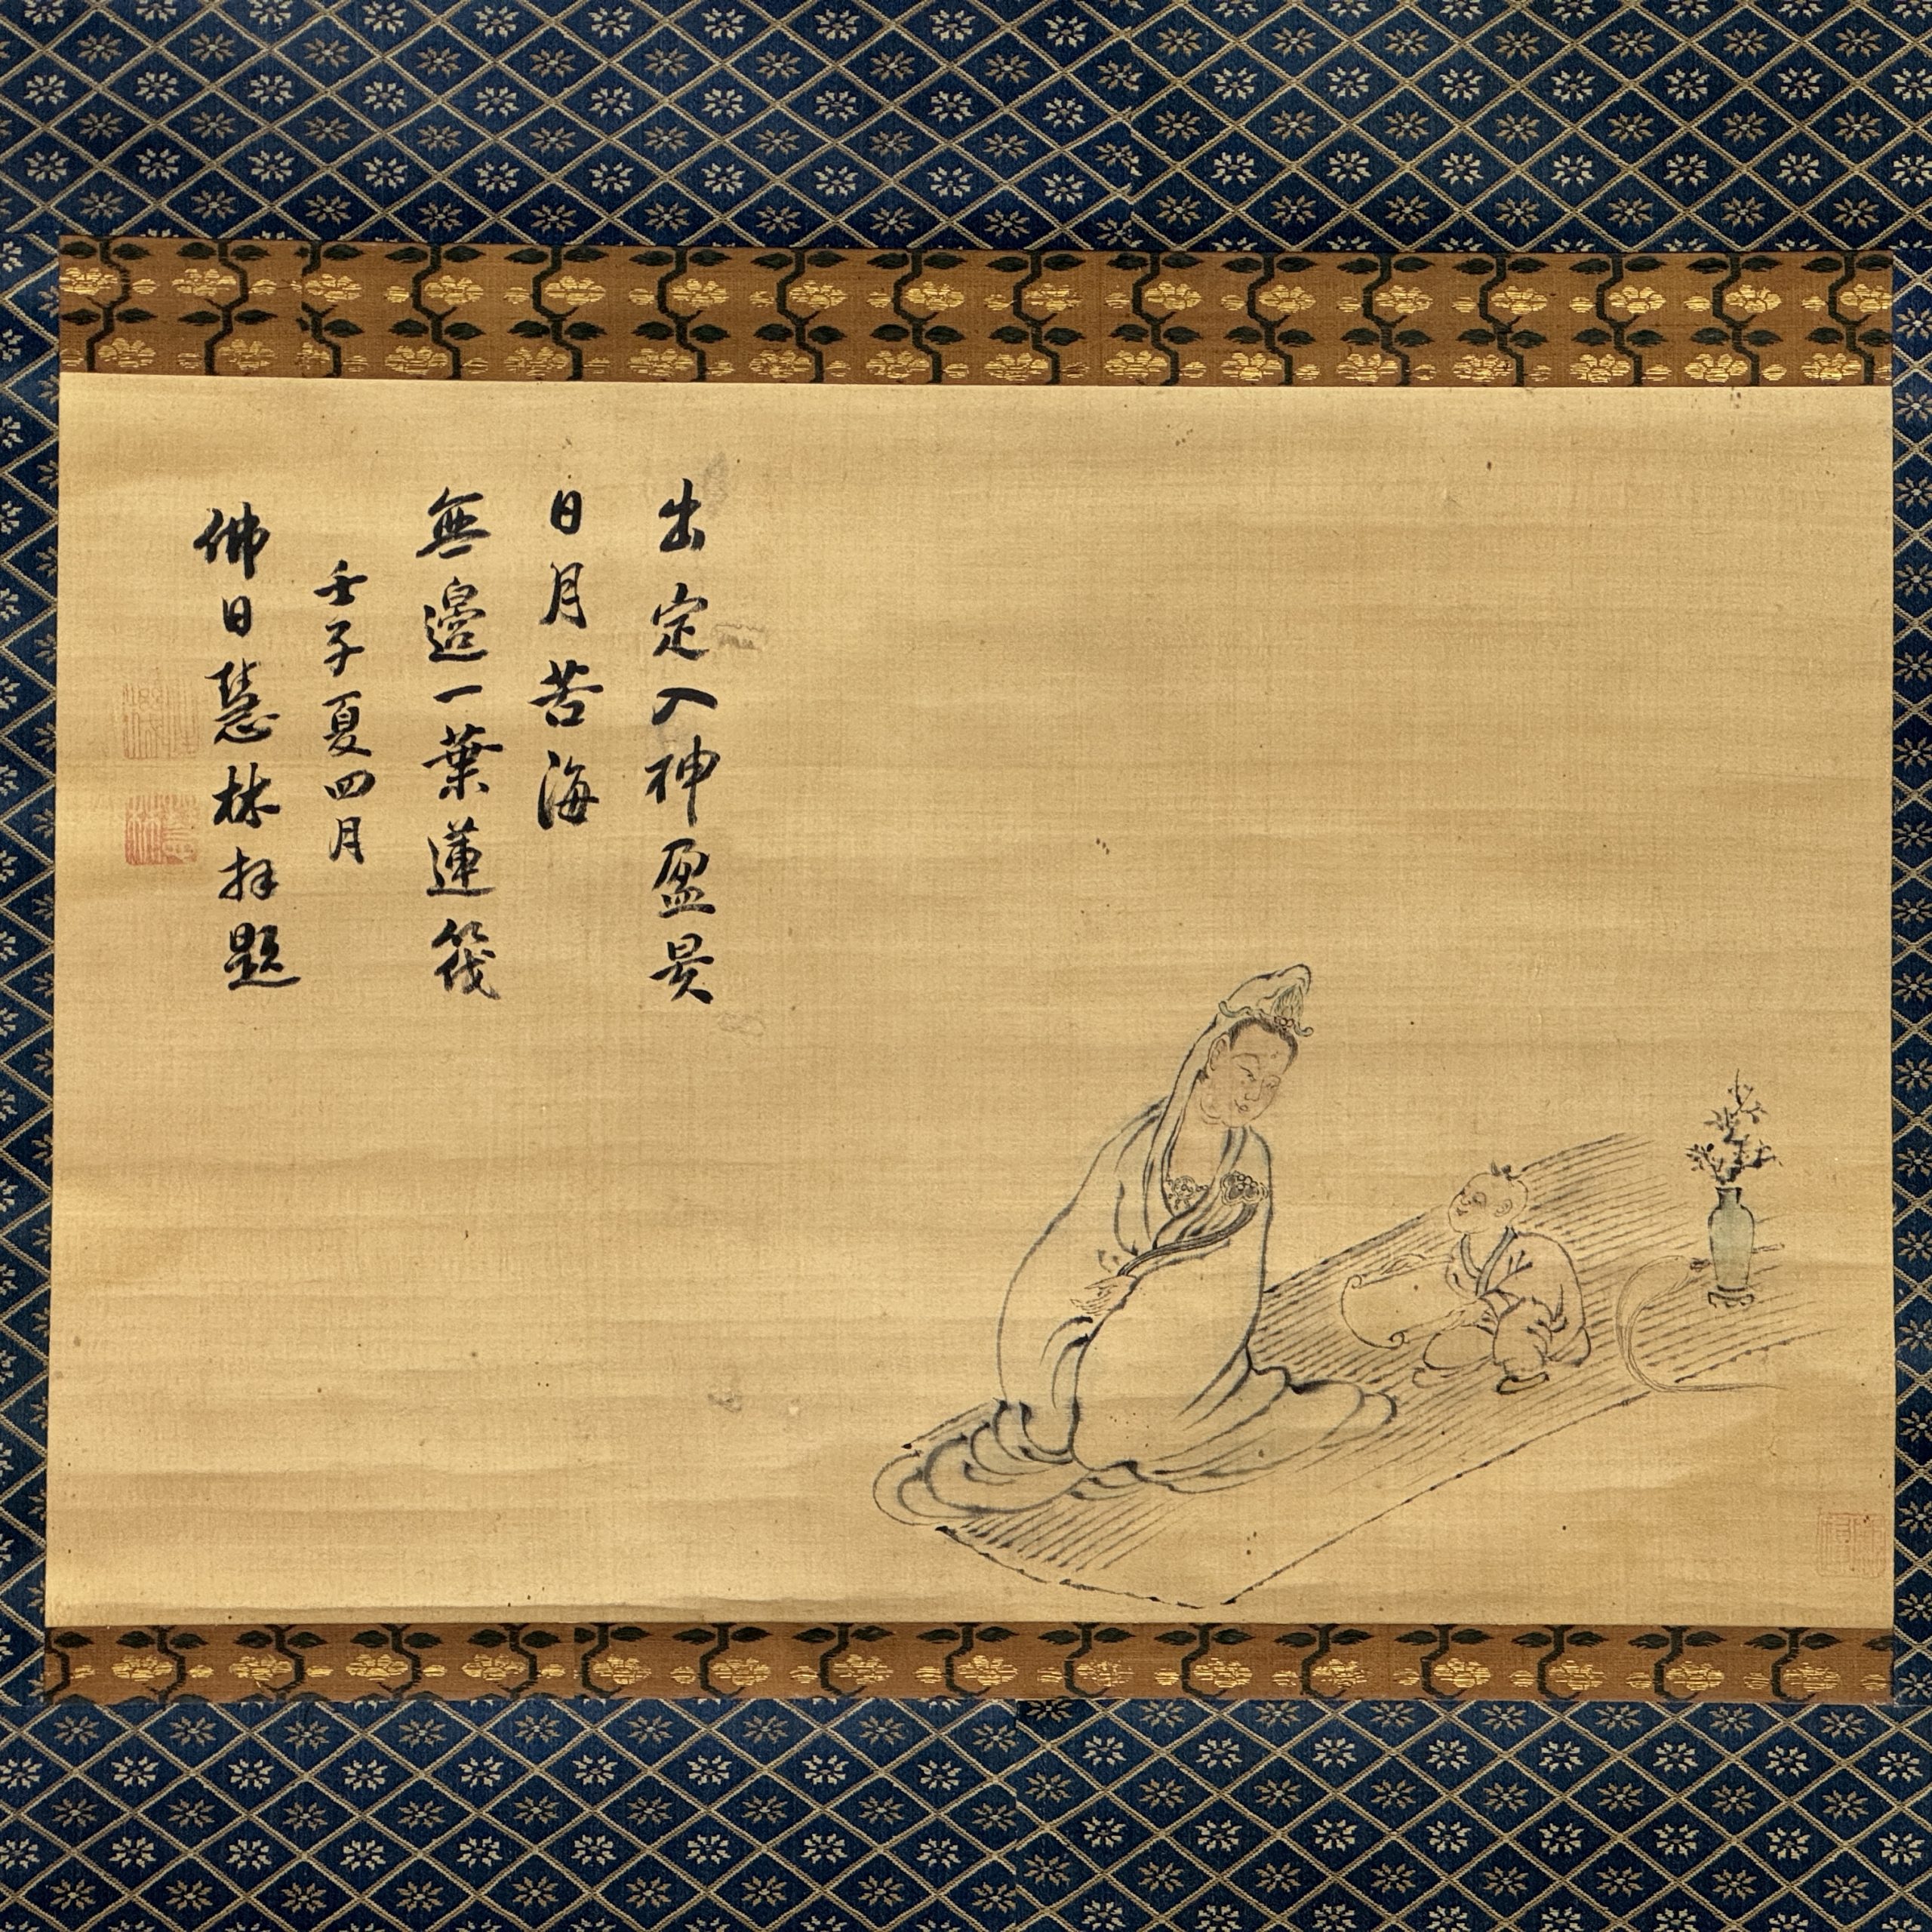 出定入神盈昃
日月苦海
無邊一葉蓮筏
壬子夏四月
佛日慧林拜題